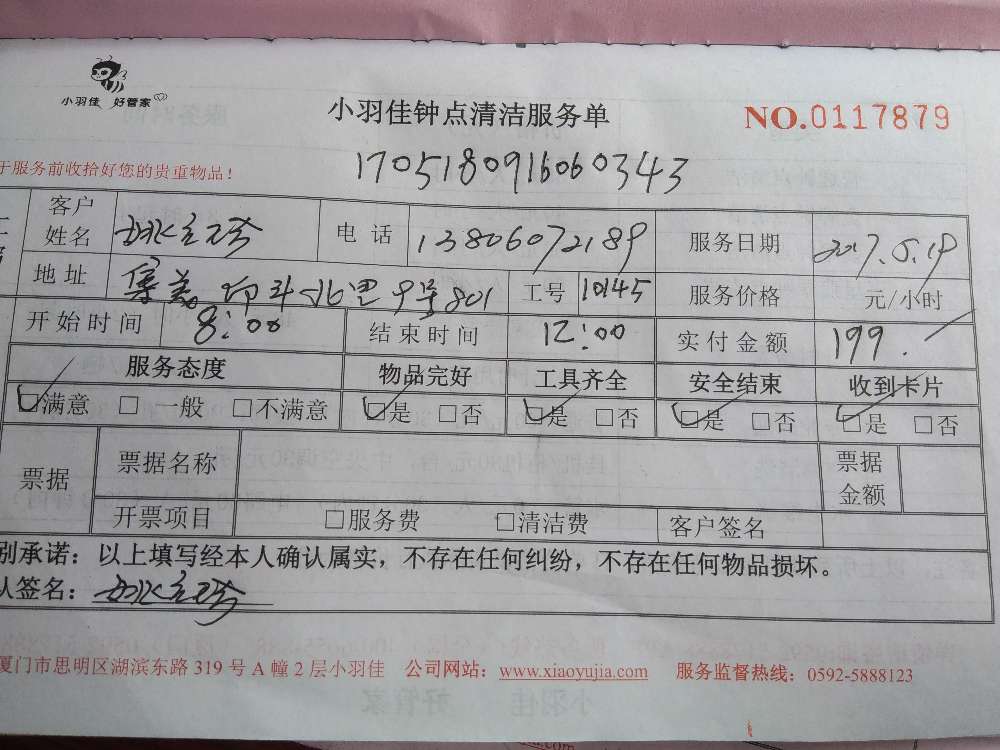 小羽佳 好管家
小羽佳钟点清洁服务单
NO.0117879
于服务前收拾好您的贵重物品！
1705180916060343
客户姓名 电话 13806072189 服务日期 2017.5.19
地址 集美 印斗北里 801 工号 10145 服务价格 元/小时
开始时间 8:00 结束时间 12:00 实付金额 199.
服务态度 物品完好 工具齐全 安全结束 收到卡片
□满意 □一般 □不满意 □是 □否 □是 □否 □是 □否 □是 □否
票据 票据名称 票据金额
开票项目 □服务费 □清洁费 客户签名
别承诺：以上填写经本人确认属实，不存在任何纠纷，不存在任何物品损坏。
人签名：
厦门市思明区湖滨东路 319 号 A 幢 2 层小羽佳 公司网站：www.xiaoyujia.com 服务监督热线：0592-5888123